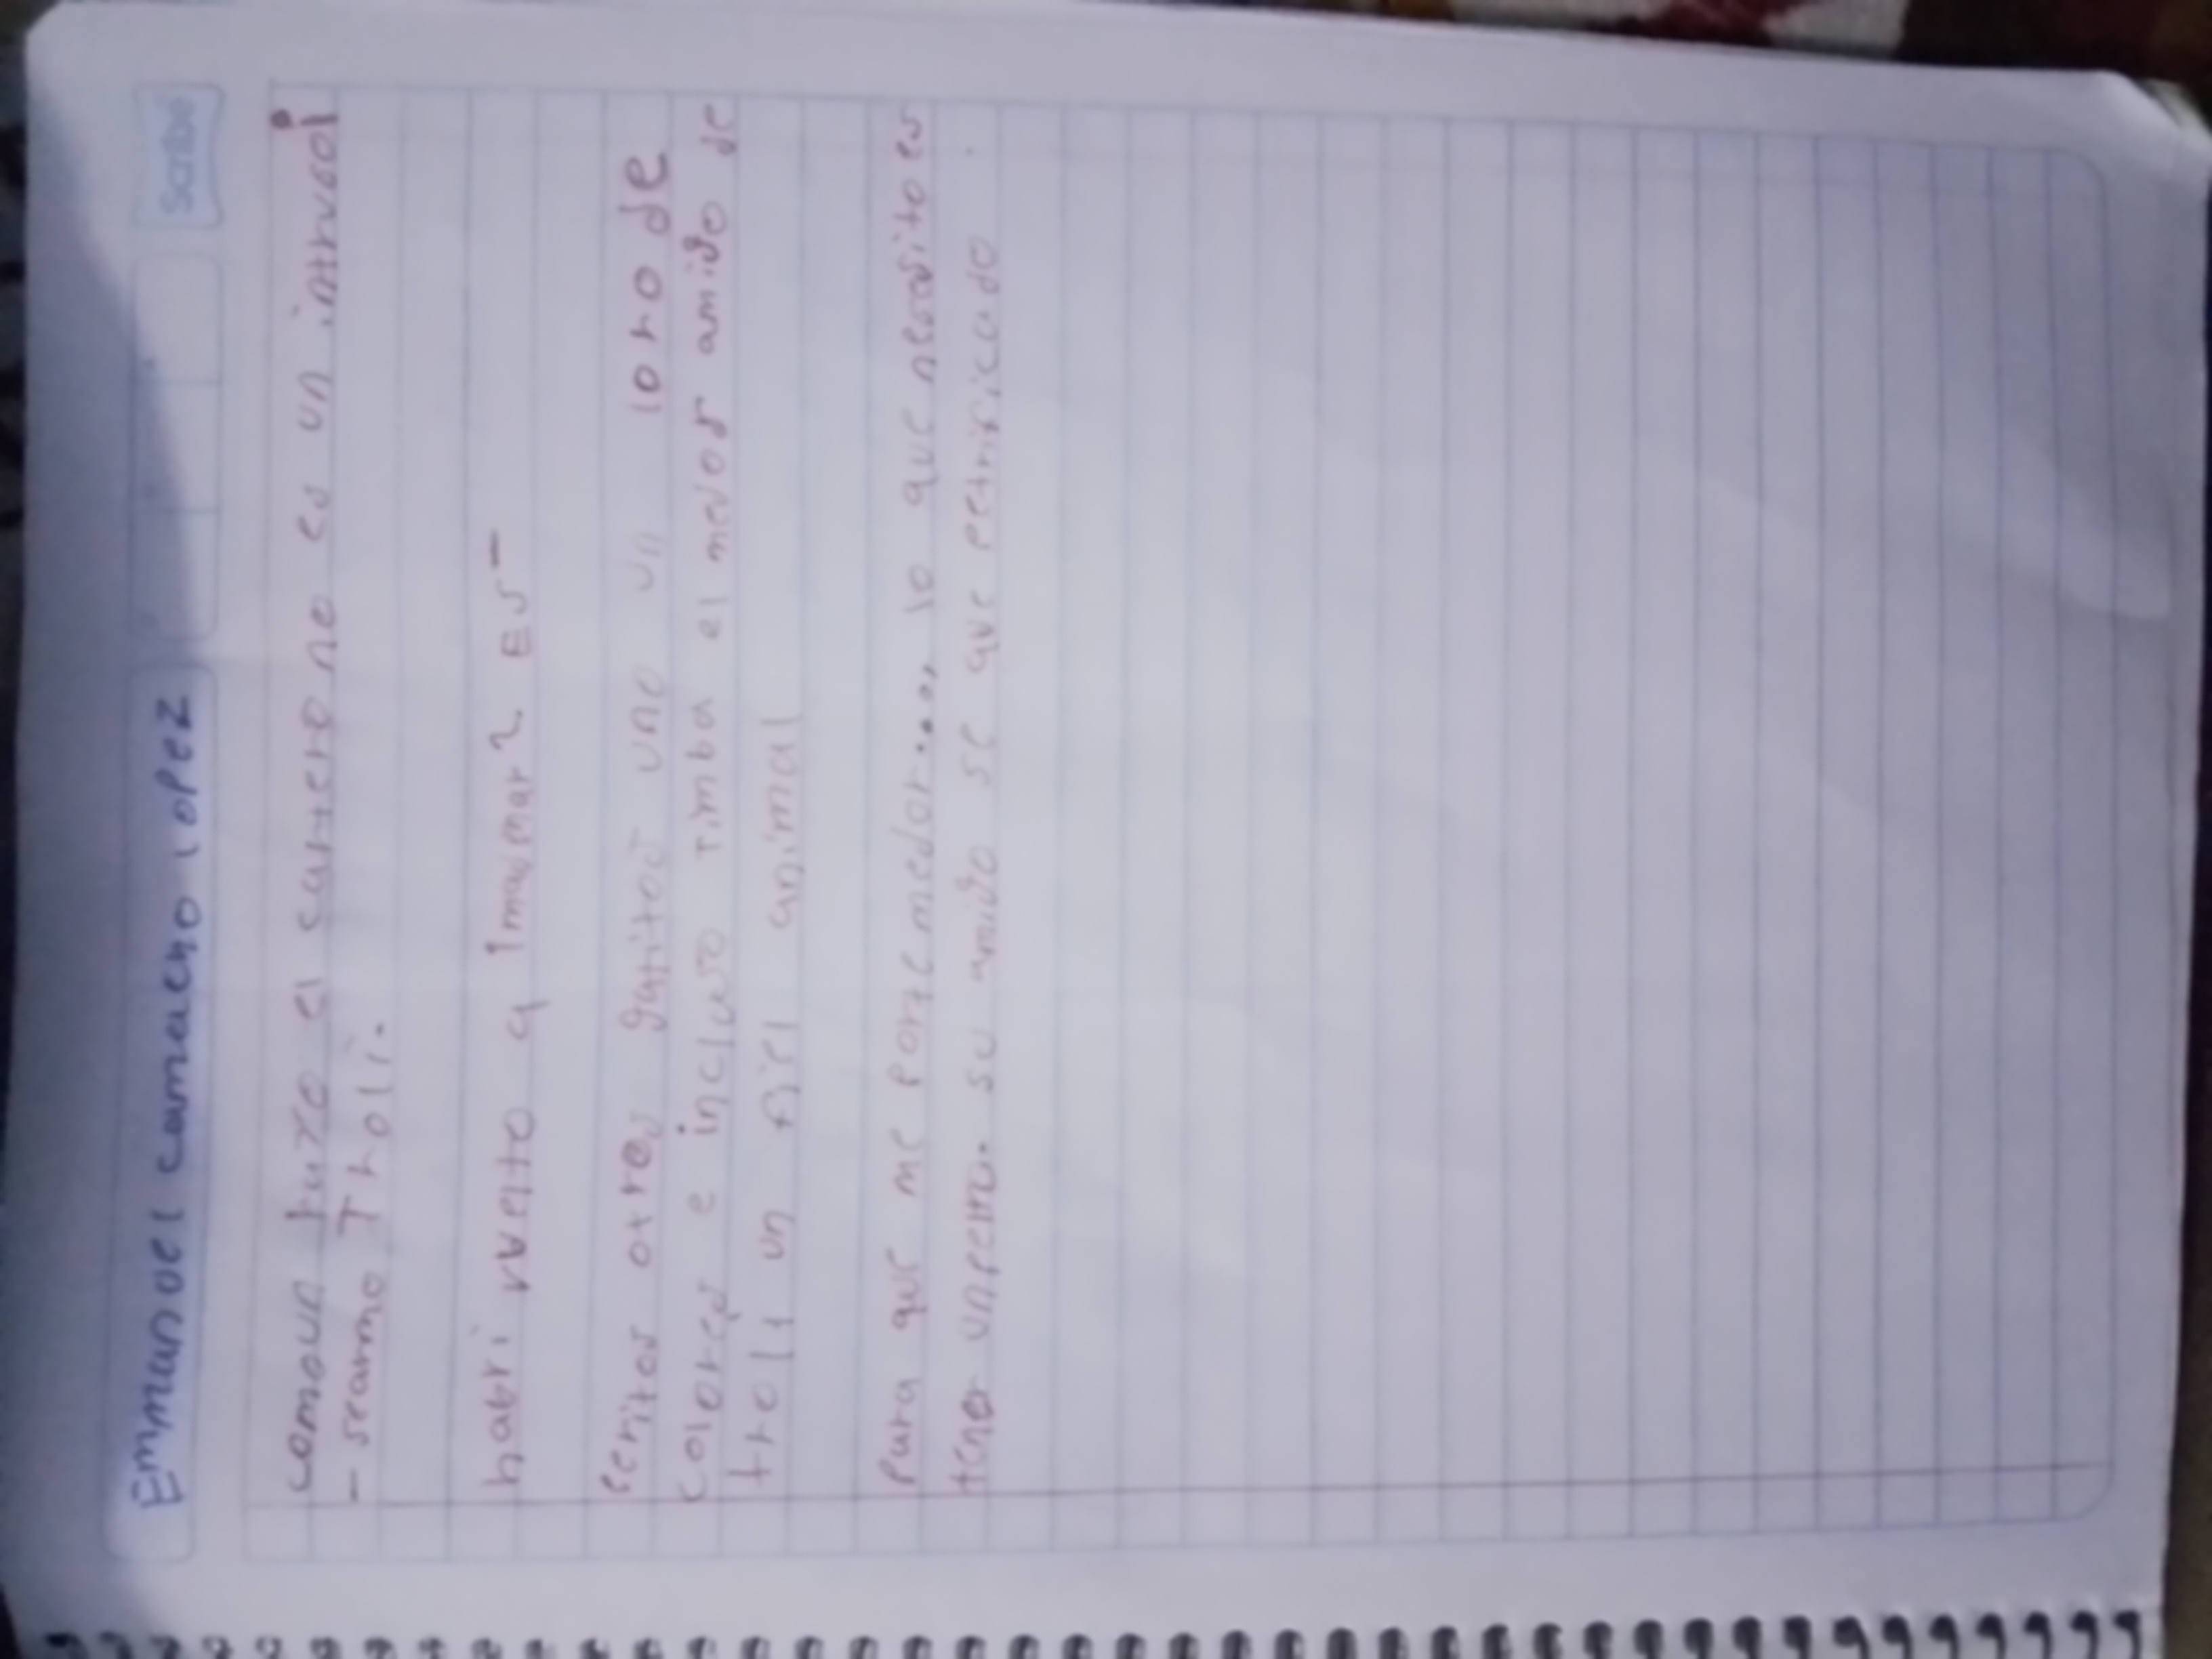 Emmanuel camacho lopez
Scribe
como un hizo el carnero no es un introi
- seamo Troli.
habri vuelto a imaginar? Es-
Perritos otros gatitos uno un loro de
colores e incluso Timba el mejor amigo de
troli un fiel animal
Para que me porte mejor...., lo que necesito es
tener un perro. su amigo se que petrificado.